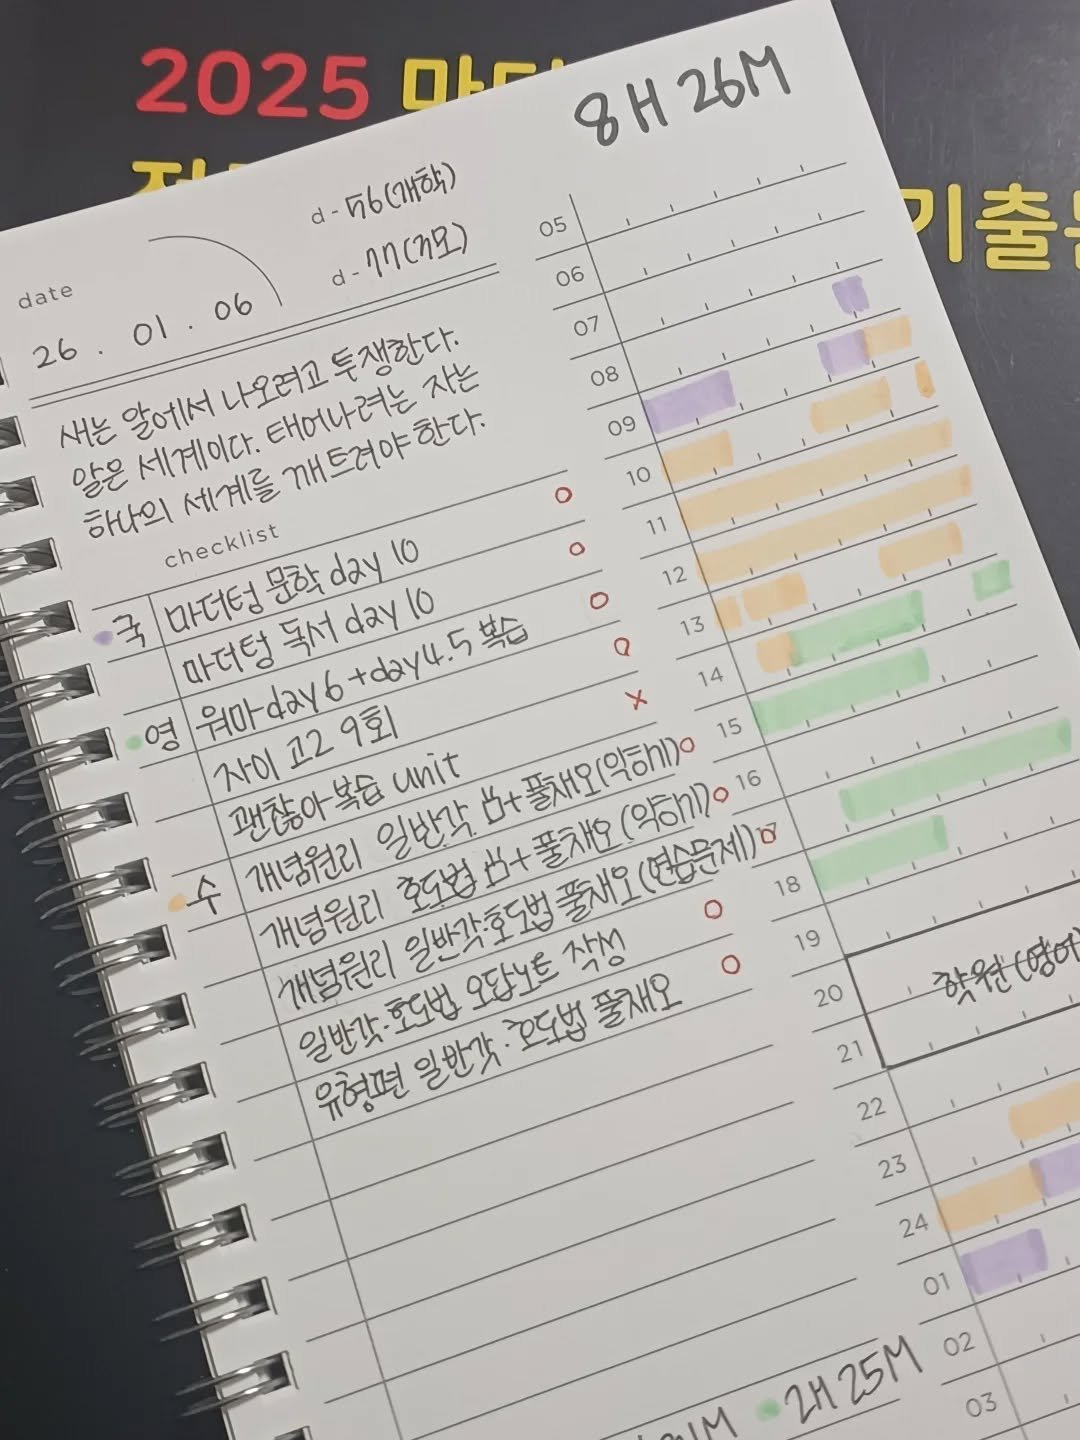 2025
기출
8H 26M
d - 56(개학)
d - 77(3모)
date
26 . 01 . 06
새는 알에서 나오려고 투쟁한다.
알은 세계이다. 태어나려는 자는
하나의 세계를 깨트려야 한다.
checklist
국 마더텅 문학 day 10 o
마더텅 독서 day 10 o
영 워마 day 6 + day 4.5 복습 o
자이 고2 9회 o
괜찮아 복습 unit x
수 개념원리 일반각 + 풀채오(익히기) o
개념원리 호도법 + 풀채오(익히기) o
개념원리 일반각·호도법 풀채오(연습문제) o
일반각·호도법 오답노트 작성 o
유형편 일반각·호도법 풀채오 o
05
06
07
08
09
10
11
12
13
14
15
16
17
18
19
20 학원(영어
21
22
23
24
01
02
03
1M
2H 25M